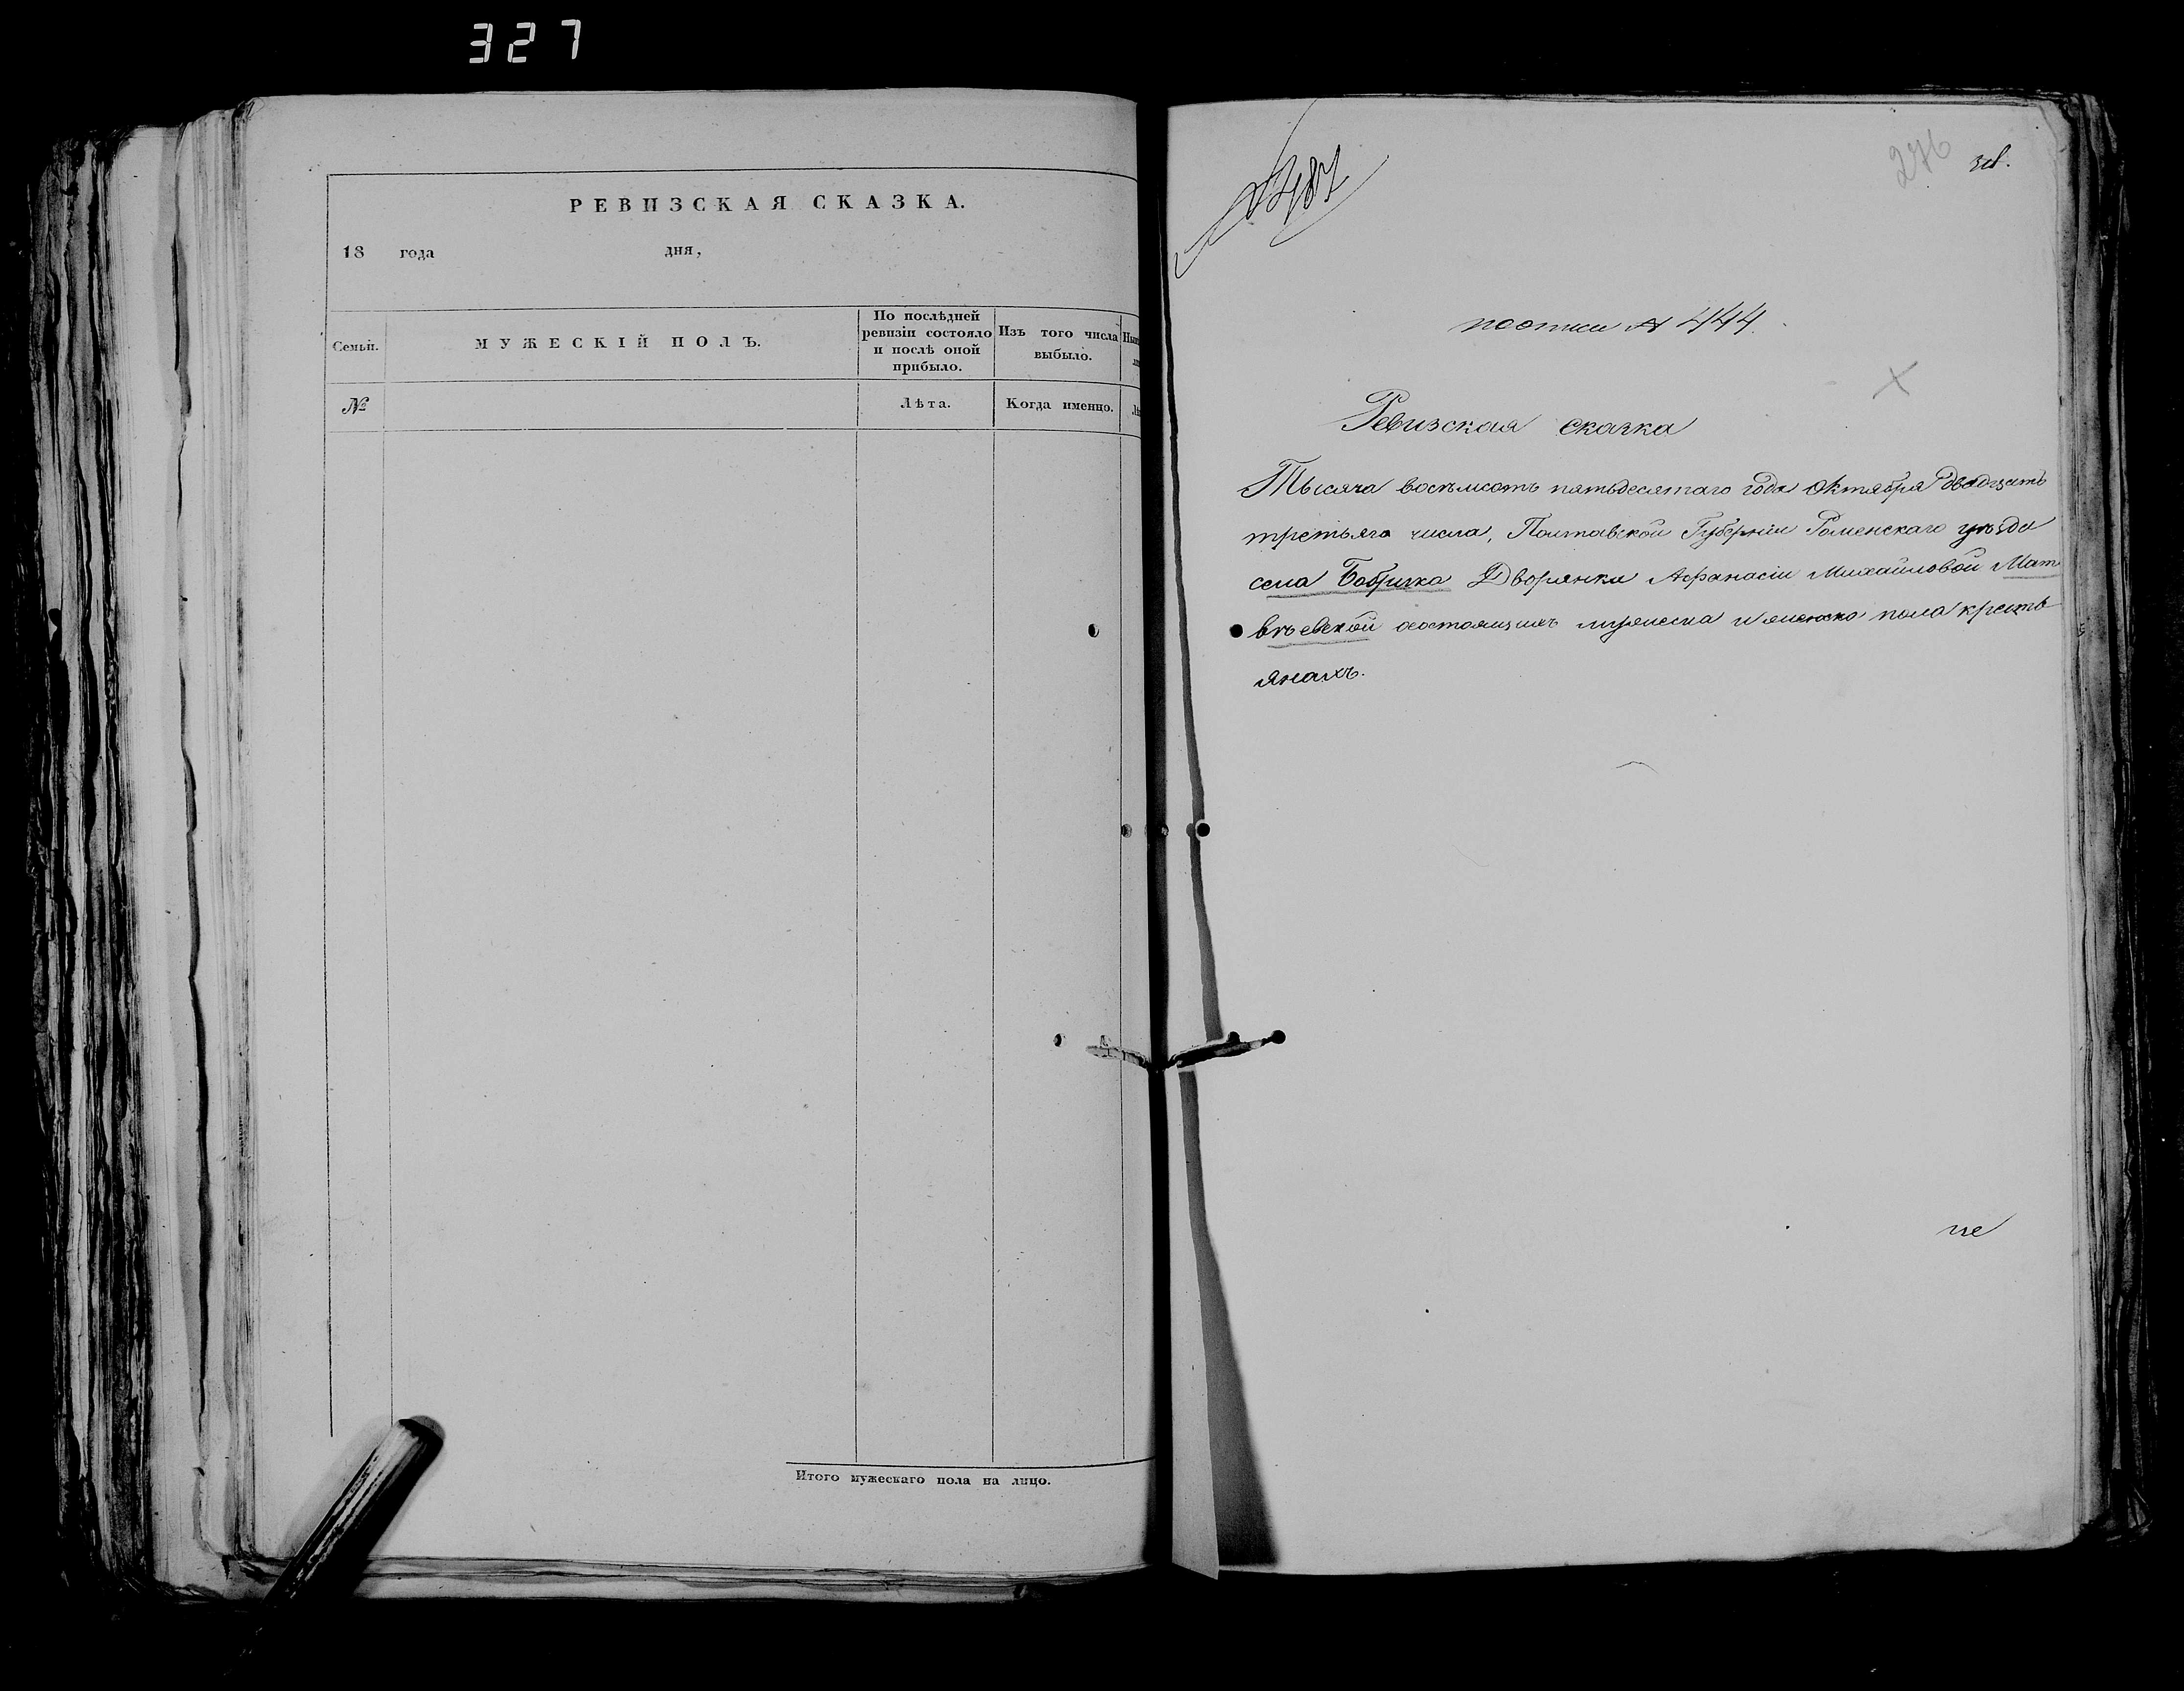 327
РЕВИЗСКАЯ СКАЗКА.
18 года дня,
Семьи. МУЖЕСКІЙ ПОЛЪ. По послѣдней ревизіи состояло и послѣ оной прибыло. Изъ того числа выбыло.
№ Лѣта. Когда именно.
Итого мужескаго пола на лицо.
276
№ 444.
Ревизская сказка
Тысяча восемсотъ пятьдесятаго года Октября двадцать
третьяго числа, Полтавской Губерніи Роменскаго уѣзда
села Бобрика Дворянки Афанасіи Михайловой Мат
вѣевской о состоящихъ мужеска и женска пола кресть
янахъ.